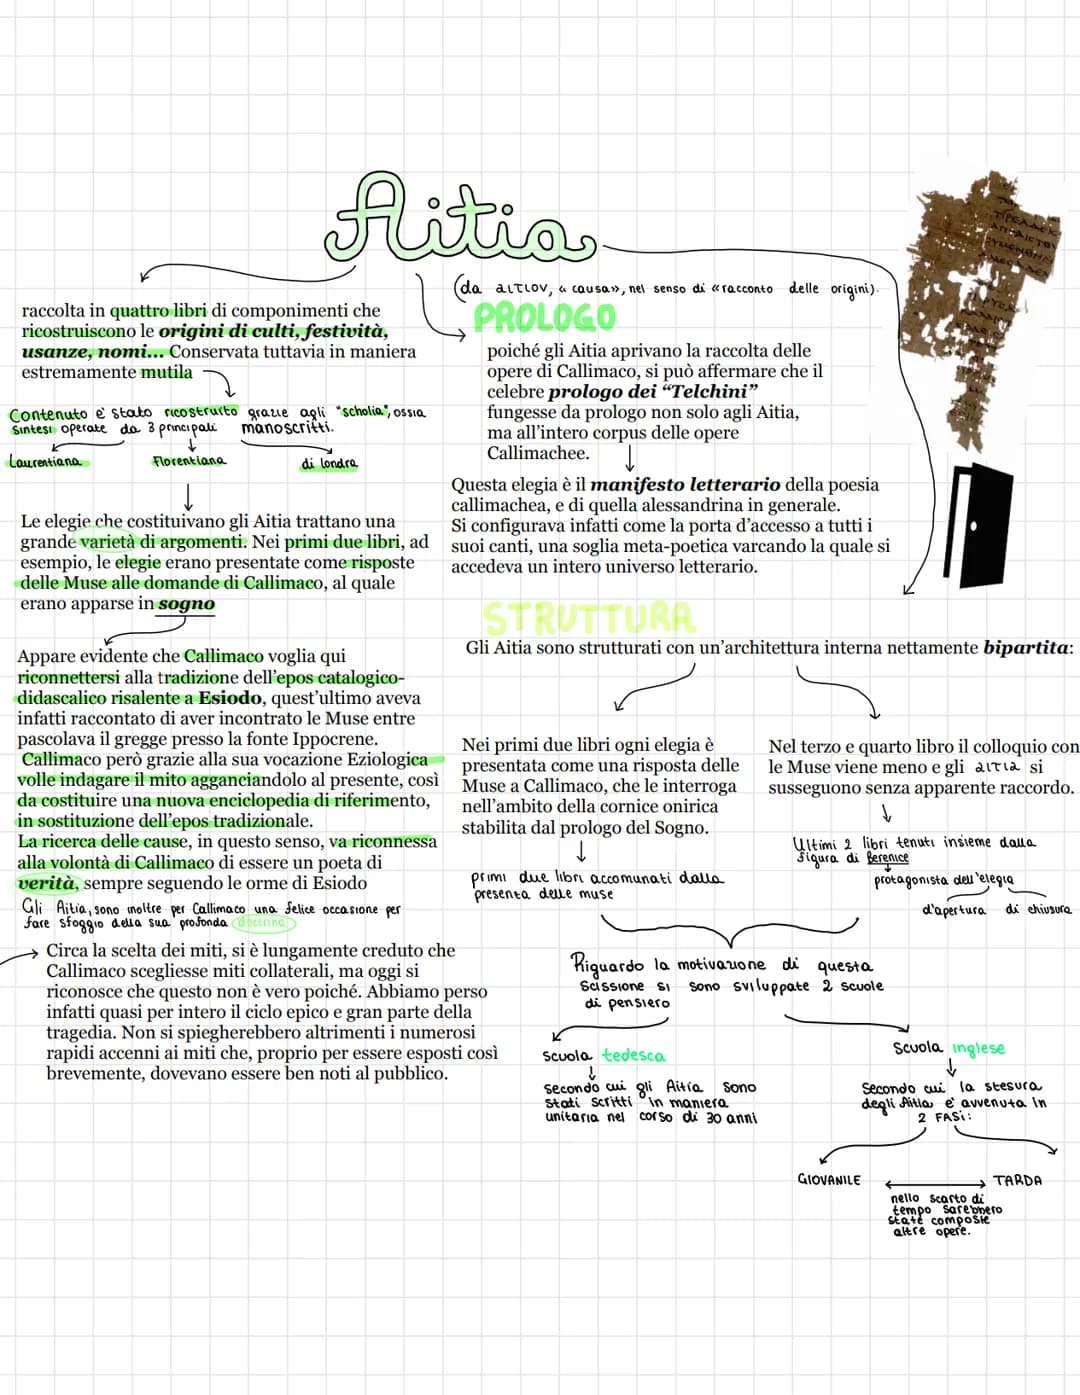 Aitia
(da αιτιον, « causa», nel senso di «racconto delle origini).
raccolta in quattro libri di componimenti che
ricostruiscono le origini di culti, festività,
usanze, nomi... Conservata tuttavia in maniera
estremamente mutila
Contenuto e' stato ricostruito grazie agli "scholia", ossia
sintesi operate da 3 principali manoscritti.
Laurentiana Florentiana di londra
Le elegie che costituivano gli Aitia trattano una
grande varietà di argomenti. Nei primi due libri, ad
esempio, le elegie erano presentate come risposte
delle Muse alle domande di Callimaco, al quale
erano apparse in sogno
Appare evidente che Callimaco voglia qui
riconnettersi alla tradizione dell'epos catalogico-
didascalico risalente a Esiodo, quest'ultimo aveva
infatti raccontato di aver incontrato le Muse entre
pascolava il gregge presso la fonte Ippocrene.
Callimaco però grazie alla sua vocazione Eziologica
volle indagare il mito agganciandolo al presente, così
da costituire una nuova enciclopedia di riferimento,
in sostituzione dell'epos tradizionale.
La ricerca delle cause, in questo senso, va riconnessa
alla volontà di Callimaco di essere un poeta di
verità, sempre seguendo le orme di Esiodo
Gli Aitia, sono inoltre per Callimaco una felice occasione per
fare sfoggio della sua profonda doctrina
Circa la scelta dei miti, si è lungamente creduto che
Callimaco scegliesse miti collaterali, ma oggi si
riconosce che questo non è vero poiché. Abbiamo perso
infatti quasi per intero il ciclo epico e gran parte della
tragedia. Non si spiegherebbero altrimenti i numerosi
rapidi accenni ai miti che, proprio per essere esposti così
brevemente, dovevano essere ben noti al pubblico.
PROLOGO
poiché gli Aitia aprivano la raccolta delle
opere di Callimaco, si può affermare che il
celebre prologo dei “Telchini”
fungesse da prologo non solo agli Aitia,
ma all'intero corpus delle opere
Callimachee.
Questa elegia è il manifesto letterario della poesia
callimachea, e di quella alessandrina in generale.
Si configurava infatti come la porta d'accesso a tutti i
suoi canti, una soglia meta-poetica varcando la quale si
accedeva un intero universo letterario.
STRUTTURA
Gli Aitia sono strutturati con un'architettura interna nettamente bipartita:
Nei primi due libri ogni elegia è
presentata come una risposta delle
Muse a Callimaco, che le interroga
nell'ambito della cornice onirica
stabilita dal prologo del Sogno.
primi due libri accomunati dalla
presenta delle muse
Nel terzo e quarto libro il colloquio con
le Muse viene meno e gli αιτια si
susseguono senza apparente raccordo.
Ultimi 2 libri tenuti insieme dalla
figura di Berenice
protagonista dell'elegia
d'apertura di chiusura
Riguardo la motivazione di questa
scissione si sono sviluppate 2 scuole
di pensiero
scuola tedesca
secondo cui gli Aitia sono
stati scritti in maniera
unitaria nel corso di 30 anni
scuola inglese
Secondo cui la stesura
degli Aitia e' avvenuta in
2 FASI:
GIOVANILE TARDA
nello scarto di
tempo sarebbero
state composte
altre opere.